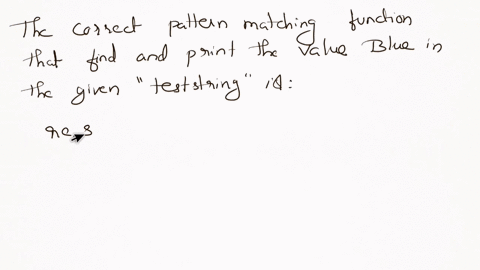 The correct pattern matching function
that find and print the value Blue in
the given "teststring" is:
re.s